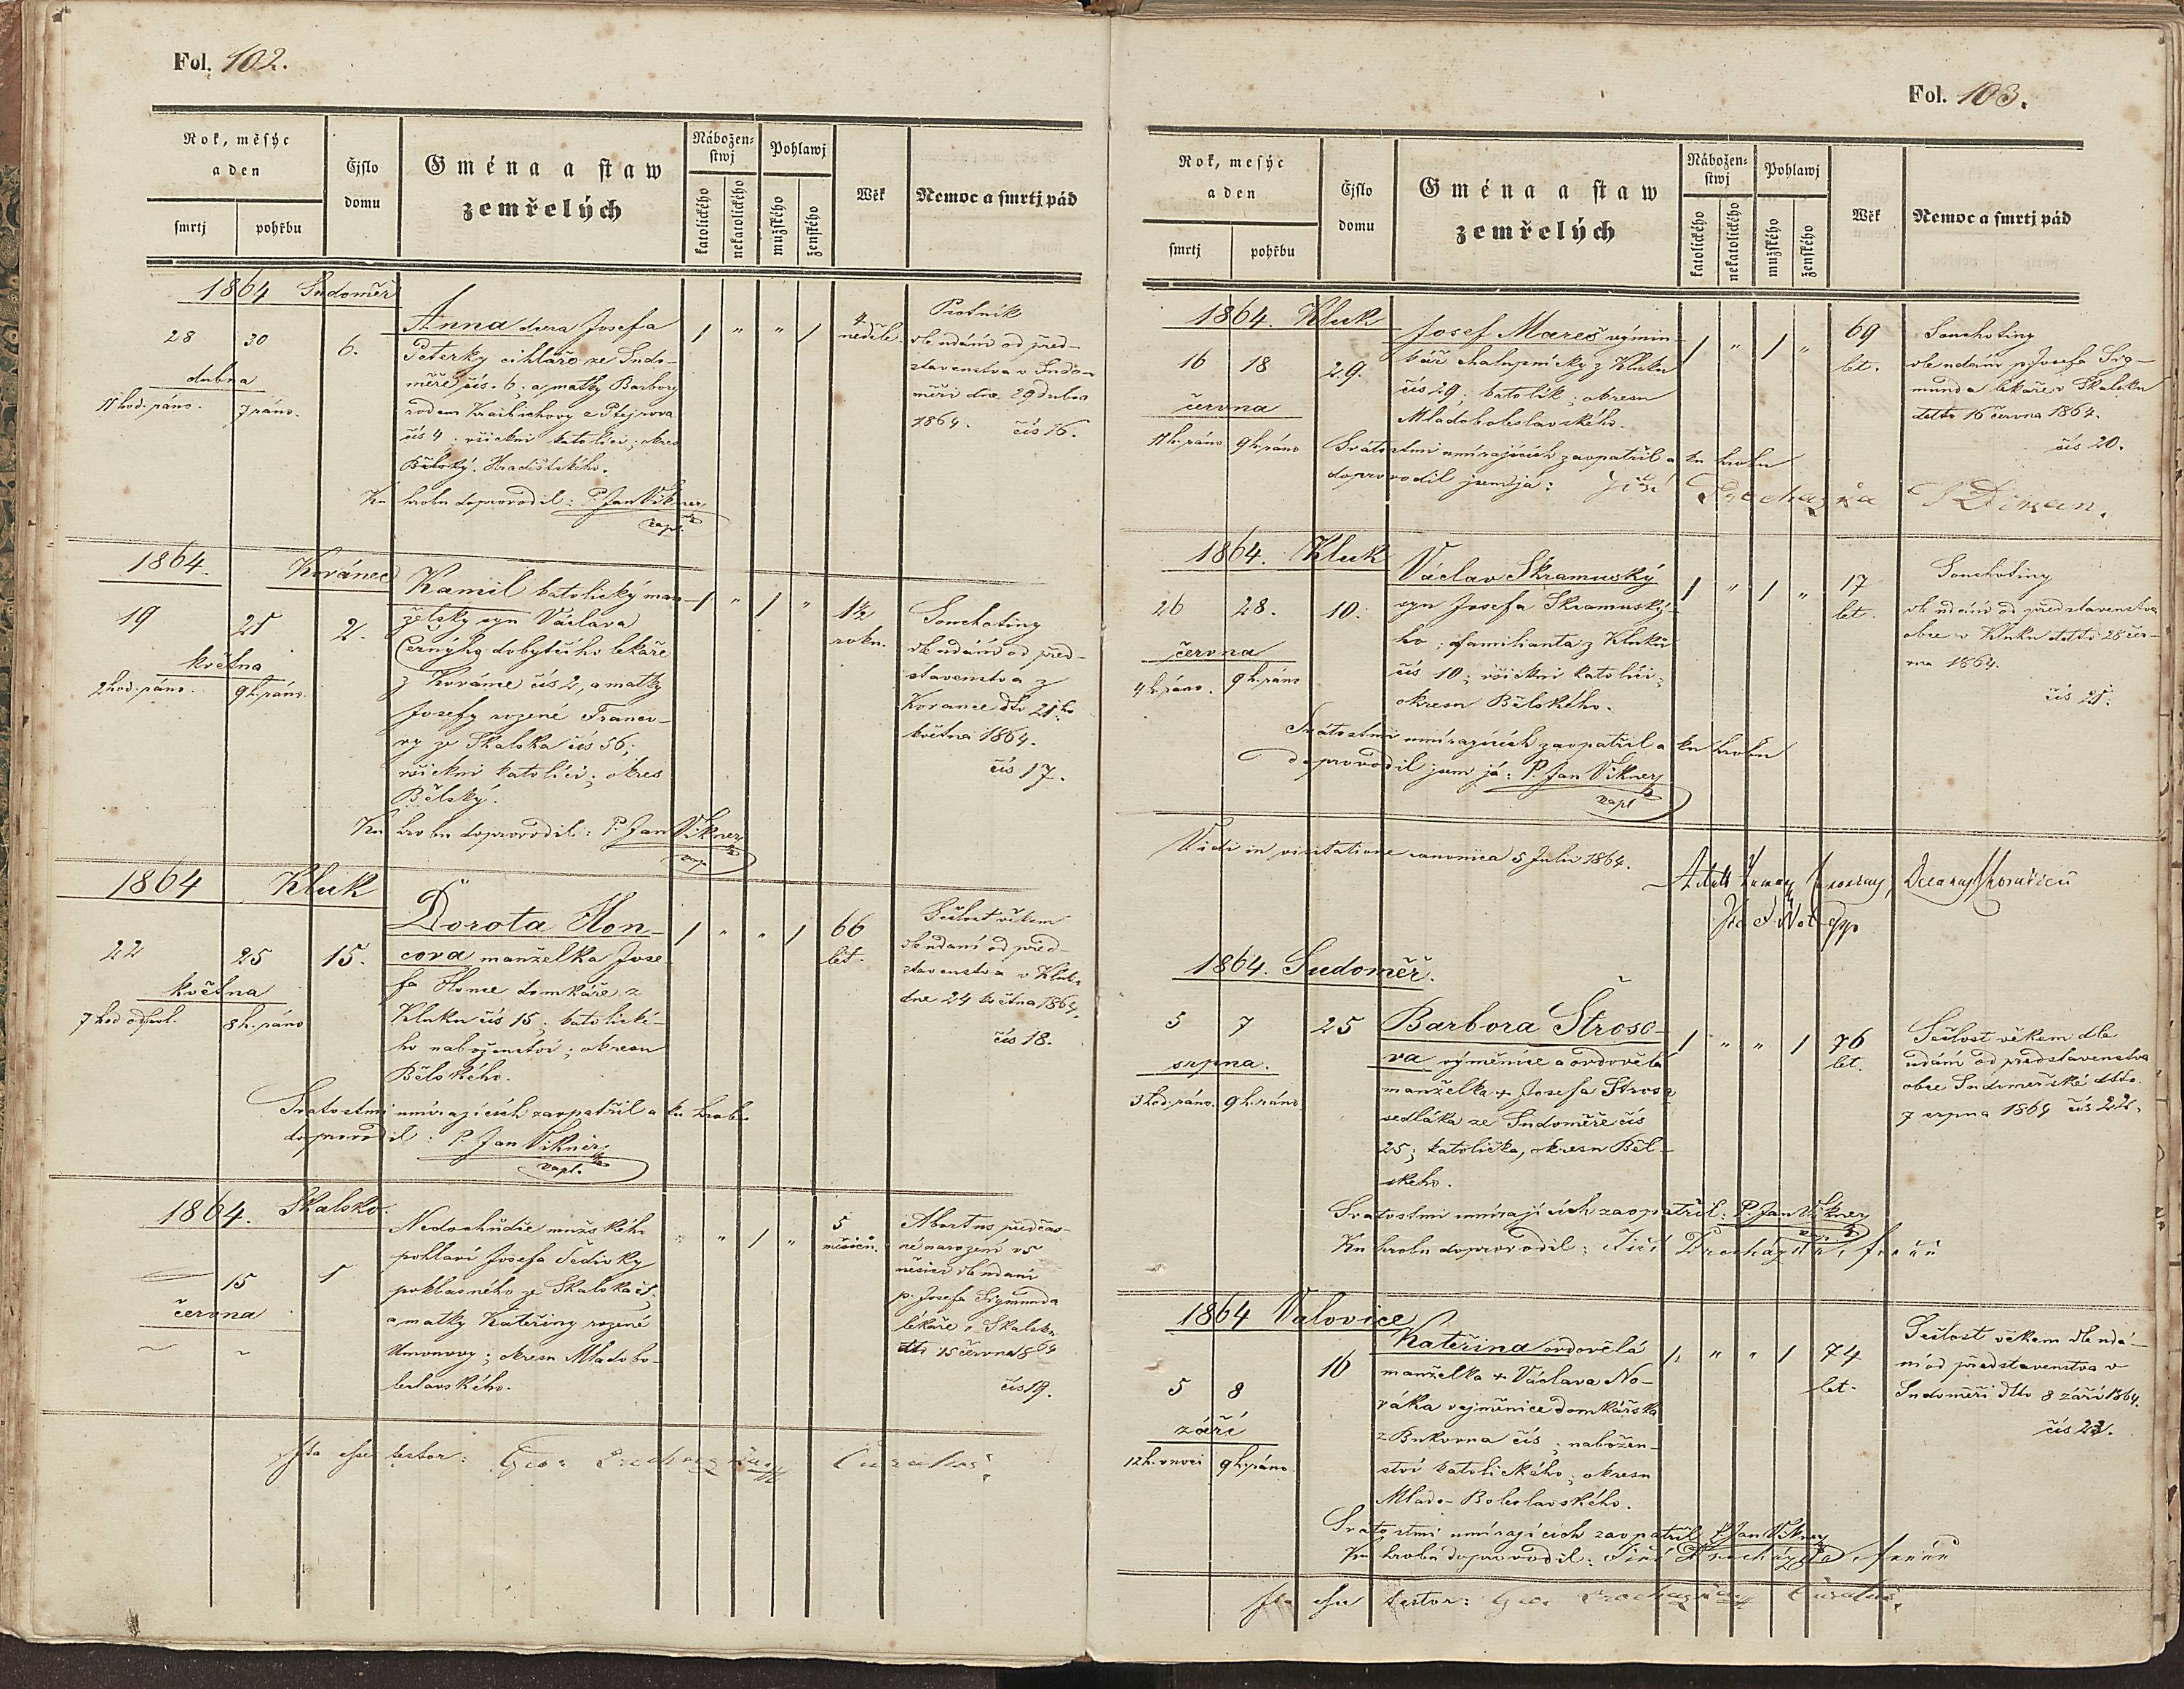 Fol. 102.
Rok, měsýc
a den
smrtj
pohřbu
Čjslo
domu
Gména a staw
zemřelých
Nábožen-
stwj
katolického
nekatolického
Pohlawj
mužského
ženského
Wěk
Nemoc a smrtj pád
1864 Sudoměř
28 30 6.
dubna
11 hod. ráno. 7 ráno.
Anna dcera Josefa
Peterky cihláře ze Sudo-
měře čís. 6. a matky Barbory
rodem
čís 4; všickni katolíci; okres
Bělský. Hradištského.
Ku hrobu doprovodil: P. Jan Vikner
kapl.
1 " " 1
4
neděle
Psotník
dle udání od před-
stavenstva v Sudo-
měři dne 29 dubna
1864. čís 16.
1864. Kovánec
19 21 2.
května
2 hod. ráno. 9 h. ráno
Kamil katolický man-
želský syn Václava
Černýho dobytčího lékaře
z Kovánce čís 2, a matky
Josefy rozené Franco-
vy ze Skalska čís 56;
všickni katolíci; okres
Bělský.
Ku hrobu doprovodil: P. Jan Vikner
kapl
1 " 1 "
1½
roku.
Souchotiny
dle udání od před-
stavenstva z
Kovance dto 21ho
května 1864.
čís 17.
1864 Kluk
22 25 15.
května
7 hod odpol. 8 h. ráno
Dorota Hon-
cova manželka Jose-
fa Honce domkáře z
Kluku čís 15; katolické-
ho naboženství; okresu
Bělského.
Svatostmi umírajících zaopatřil a ku hrobu
doprovodil: P. Jan Vikner
kapl.
1 " " 1
66
let.
Sešlost věkem
dle udaní od před-
stavenstva v Kluku
dne 24 května 1864.
čís 18.
1864. Skalsko.
15 1
června
Nedochůdče mužského
pohlaví Josefa Šedivky
poklasného ze Skalska č 1,
a matky Kateřiny rozené
okresu Mladobo-
leslavského.
" " 1 "
5
měsíců.
Abortus předčas-
né narození v 5
měsíci dle udaní
p. Josefa Sigmunda
lékaře v Skalsku
dto 15 června 1864
čís 19.
Ita esse testor: Geor Procházka Curatus.
Fol. 103.
Rok, mesýc
a den
smrtj
pohřbu
Čjslo
domu
Gména a staw
zemřelých
Nábožen-
stwj
katolického
nekatolického
Pohlawj
mužského
ženského
Wěk
Nemoc a smrtj pád
1864. Kluk
16 18 29.
června
11 h. ráno 9 h. ráno
Josef Mareš výmin-
kář chalupnický z Kluku
čís 29; katolík; okresu
Mladoboleslavského.
Svátostmi umírajících zaopatřil a ku hrobu
doprovodil jsem já: Jiří Procházka
1 " 1 "
69
let.
Souchotiny
dle udání p Josefa Sig-
munda lékaře v Skalsku
detto 16 června 1864.
čís 20.
1864. Kluk
26 28. 10.
června
4 h. ráno. 9 h. ráno
Václav Skramuský
syn Josefa Skramuský-
ho; familianta z Kluku
čís 10; všickni katolíci;
okresu Bělského.
Svátostmi umírajících zaopatřil a ku hrobu
doprovodil jsem já: P. Jan Vikner
kapl
1 " 1 "
17
let.
Souchotiny
dle udání od představenstva
obce v Kluku detto 28 čer-
vna 1864.
čís 21.
Vidi in visitatione canonica 5 Julii 1864.
1864. Sudoměř.
5 7 25
srpna.
3 hod. ráno. 9 h. ráno
Barbora Štroso-
va výměnice a ovdovělá
manželka + Josefa Štrosa
sedláka ze Sudoměře čís
25; katolička, okresu Běl-
skeho.
Svatostmi umírajících zaopatřil: P. Jan Vikner
kapl
Ku hrobu doprovodil: Jiří Procházka, farář
1 " " 1
76
let.
Sešlost věkem dle
udání od představenstva
obce Sudoměřské dto.
7 srpna 1864 čís 22.
1864 Valovice
5 8 16
září
12 h. v noci 9 h. ráno
Kateřina ovdovělá
manželka + Václava No-
váka vejměnice domkářska
z Bukovna čís ; nabožen-
ství katolického; okresu
Mlado-Boleslavského.
Svatostmi umírajících zaopatřil P. Jan Vikner
Ku hrobu doprovodil: Jiří Procházka, farář
1 " " 1
74
let.
Sešlost věkem dle udá-
ní od představenstva v
Sudoměři dto 8 září 1864.
čís 23.
Ita esse testor: Geor Procházka Curatus.